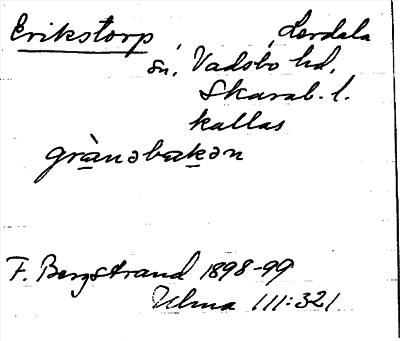 Erikstorp Lerdala
sn, Vadsbo hd,
Skarab. l.
kallas
grànəbakən
F. Bergstrand 1898-99
Ulma 111:321